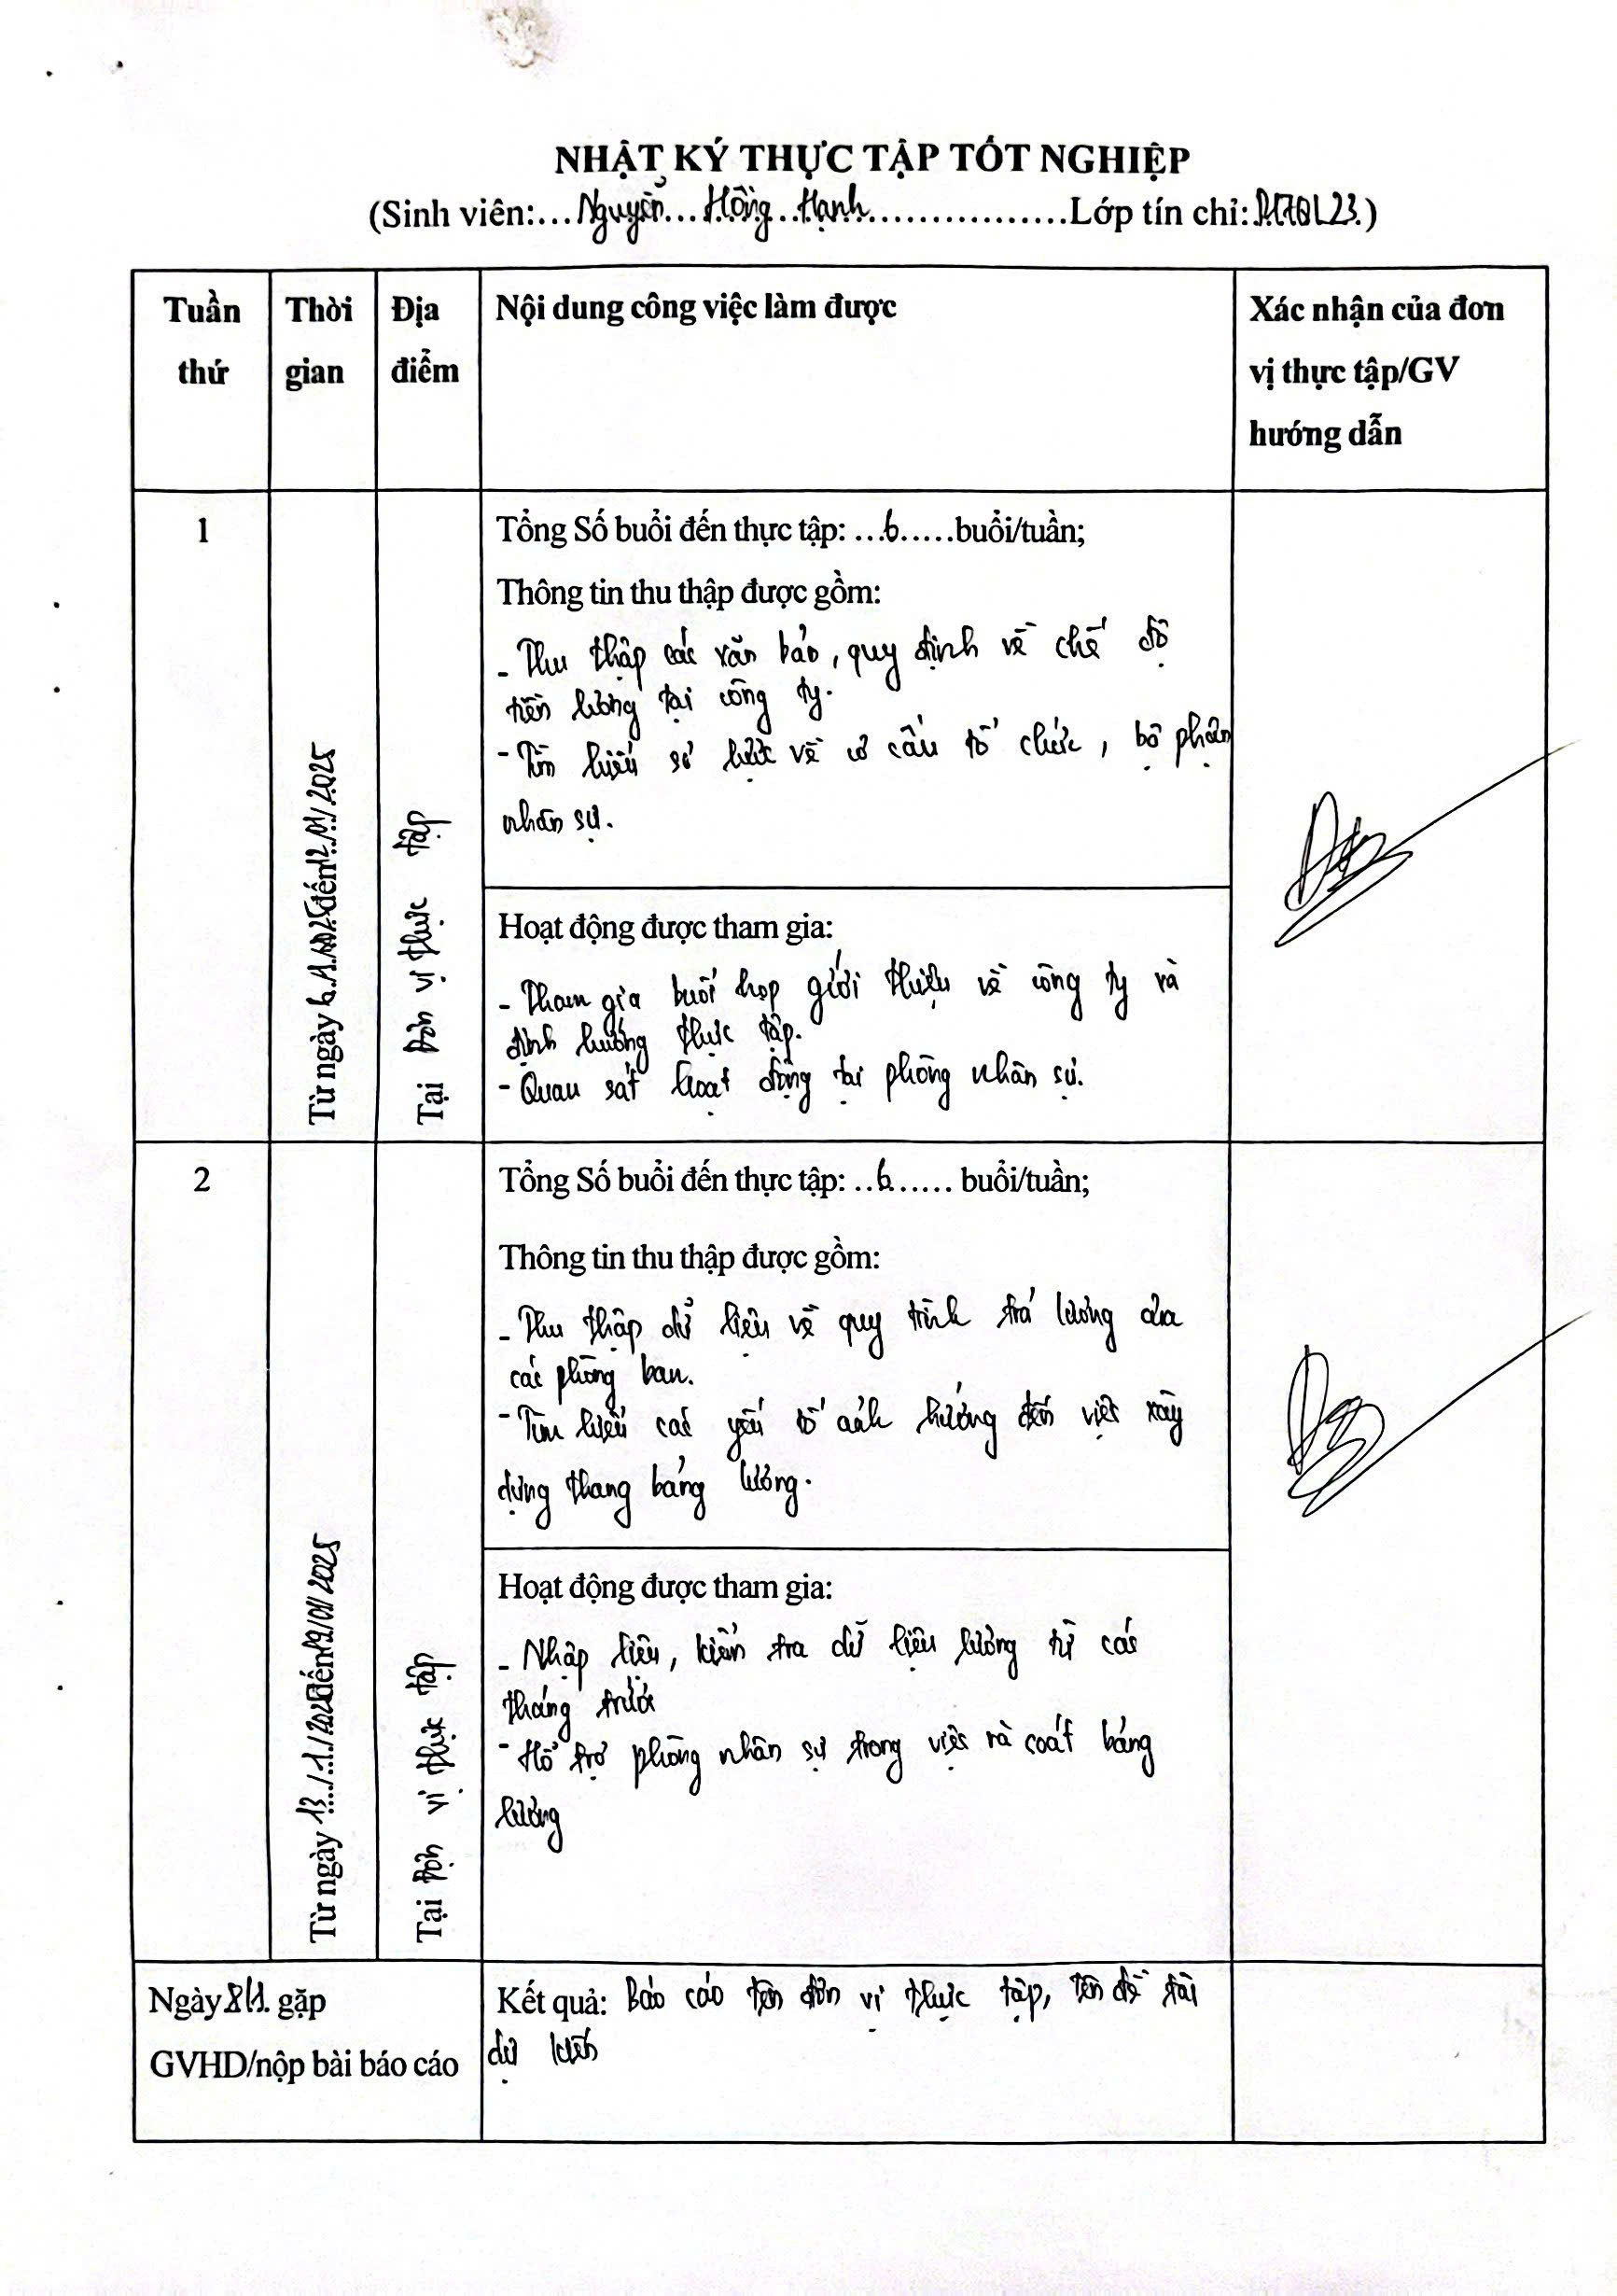 NHẬT KÝ THỰC TẬP TỐT NGHIỆP
(Sinh viên:...Nguyễn...Hồng...Hạnh...................Lớp tín chỉ: )
Tuần thứ
Thời gian
Địa điểm
Nội dung công việc làm được
Xác nhận của đơn vị thực tập/GV hướng dẫn
1
Từ ngày 6.1.2025 đến 12/01/2025
Tại Đơn vị thực tập
Tổng Số buổi đến thực tập: ...6.....buổi/tuần;
Thông tin thu thập được gồm:
- Thu thập các văn bản, quy định về chế độ
tiền lương tại công ty.
- Tìm hiểu sơ lược về cơ cấu tổ chức, bộ phận
nhân sự.
Hoạt động được tham gia:
- Tham gia buổi họp giới thiệu về công ty và
định hướng thực tập.
- Quan sát hoạt động tại phòng nhân sự.
2
Từ ngày 13/1/2025 đến 19/01/2025
Tại Đơn vị thực tập
Tổng Số buổi đến thực tập: ..6...... buổi/tuần;
Thông tin thu thập được gồm:
- Thu thập dữ liệu về quy trình trả lương của
các phòng ban.
- Tìm hiểu các yếu tố ảnh hưởng đến việc xây
dựng thang bảng lương.
Hoạt động được tham gia:
- Nhập liệu, kiểm tra dữ liệu lương từ các
tháng trước
- Hỗ trợ phòng nhân sự trong việc rà soát bảng
lương
Ngày 8/1. gặp
GVHD/nộp bài báo cáo
Kết quả: Báo cáo tên đơn vị thực tập, tên đề tài
dự kiến